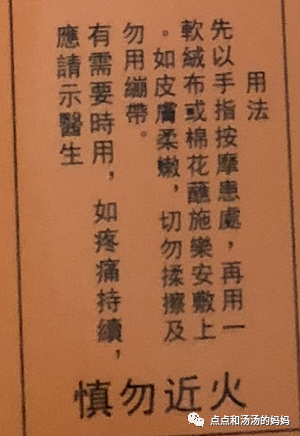 用法
先以手指按摩患處，再用一
軟絨布或棉花蘸施樂安敷上
。如皮膚柔嫩，切勿揉擦及
勿用繃帶。
有需要時用，如疼痛持續，
應請示醫生
慎勿近火
点点和汤汤的妈妈